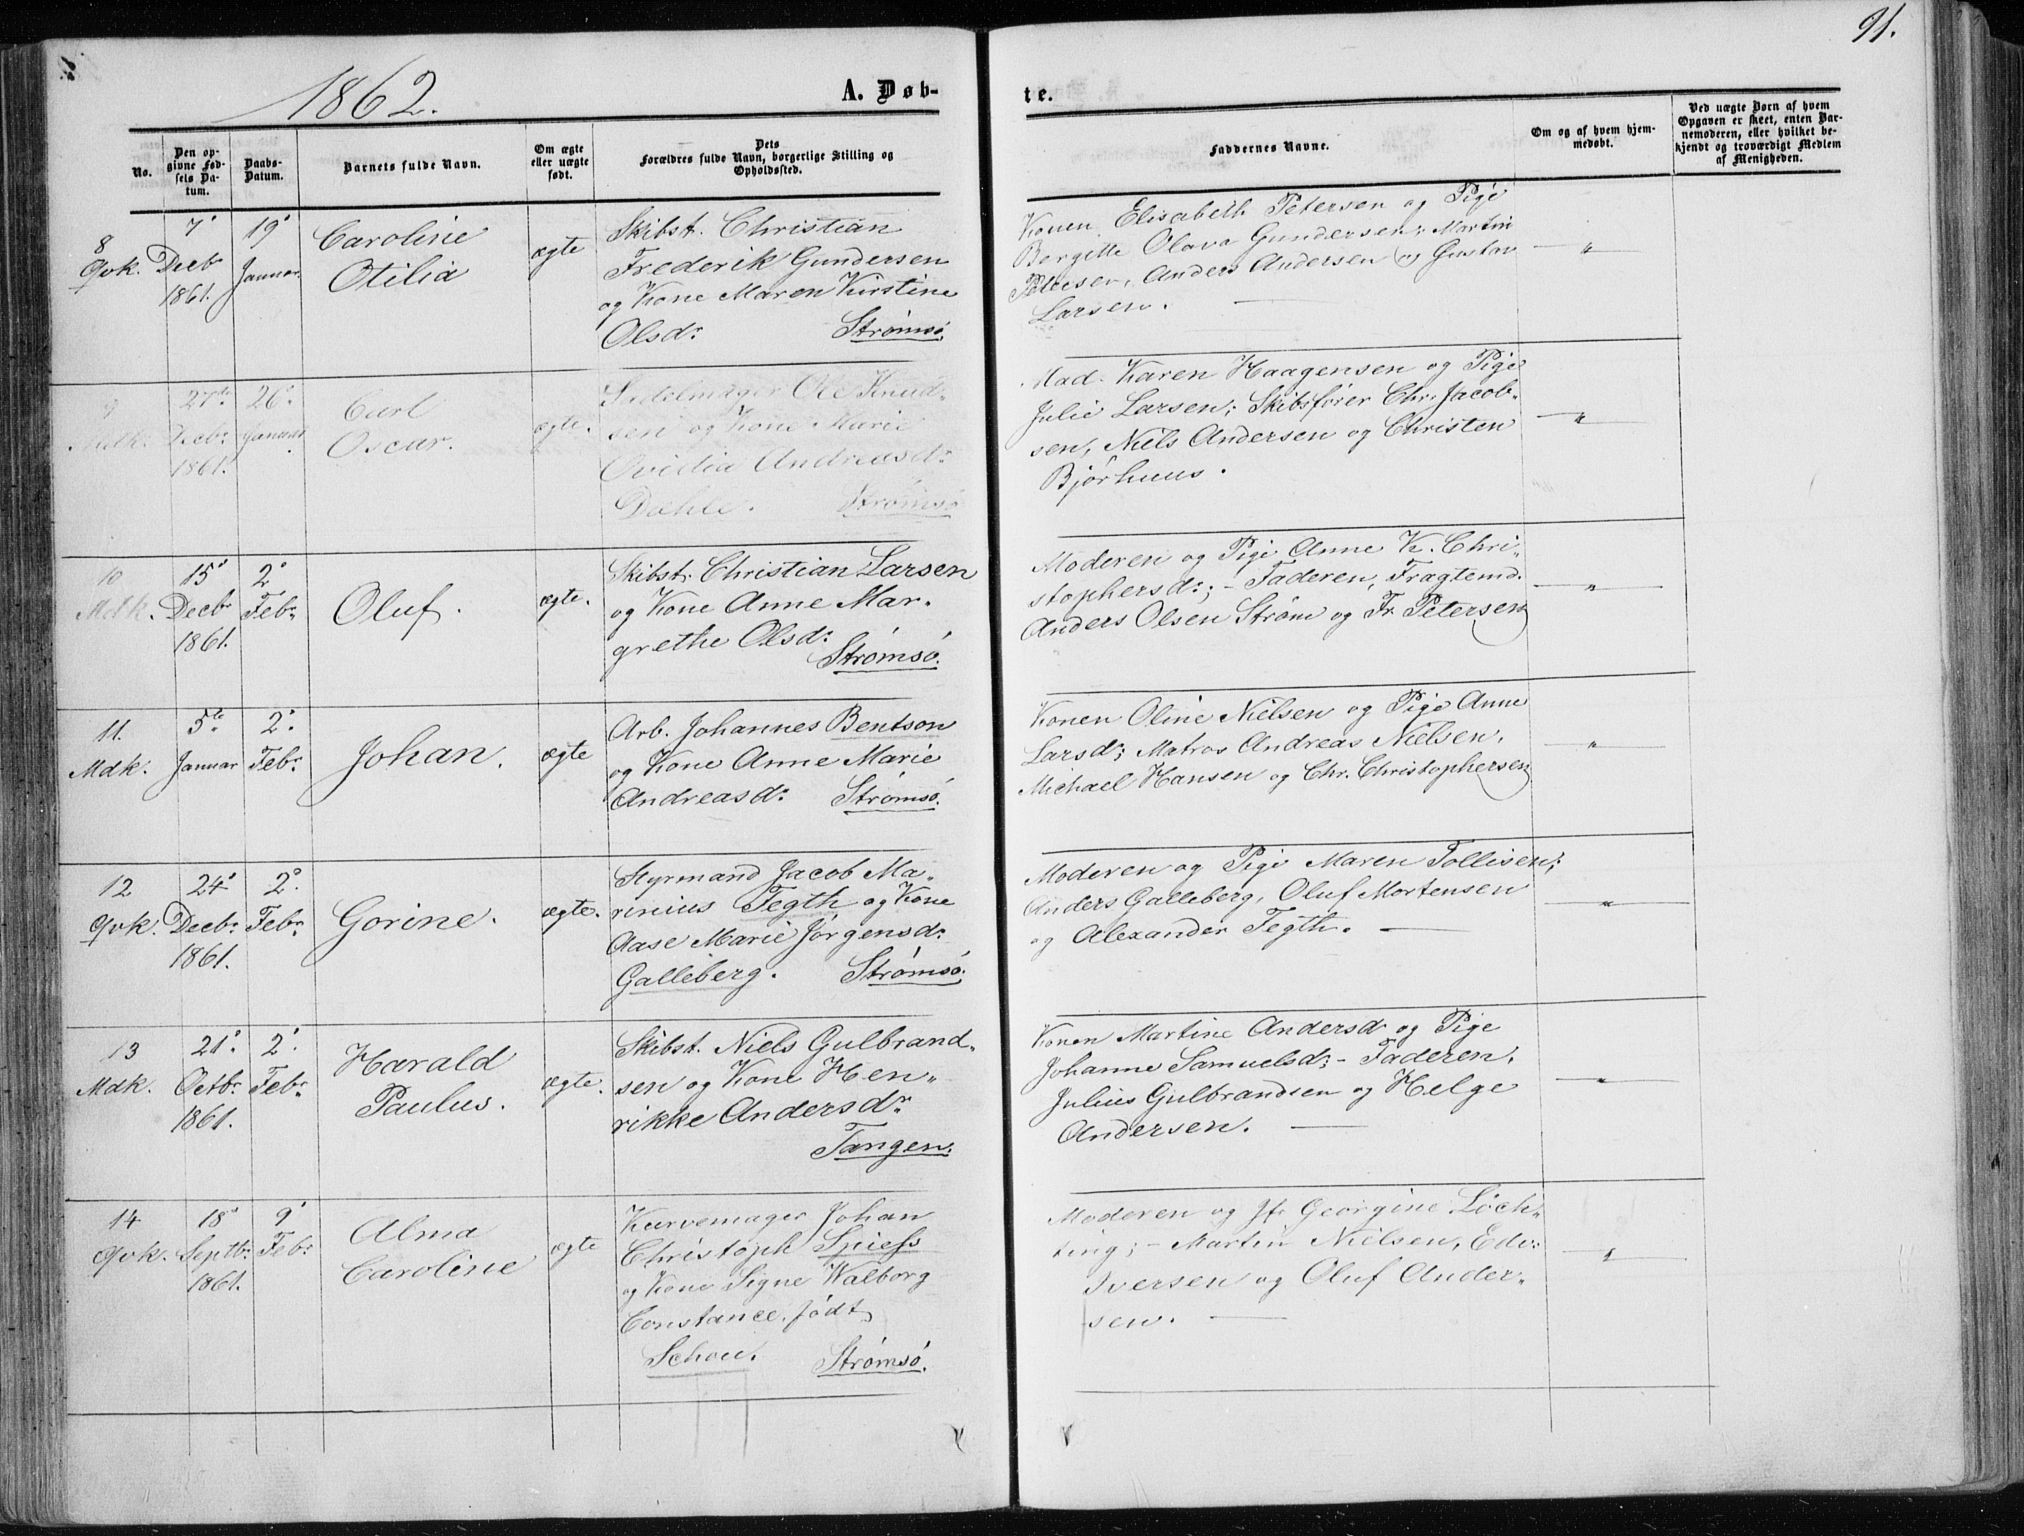 91.
1862.
A. Døb-
te.
No.
Den op-
givne Fød-
sels Da-
tum.
Daabs-
Datum.
Barnets fulde Navn.
Om ægte
eller uægte
født.
Dets
Forældres fulde Navn, borgerlige Stilling og
Opholdssted.
Faddernes Navne.
Om og af hvem hjem-
medøbt.
Ved uægte Børn af hvem
Opgaven er skeet, enten Bar-
nemoderen, eller hvilket be-
kjendt og troværdigt Medlem
af Menigheden.
8
Qvk.
7de
Decbr
1861.
19de
Januar.
Caroline
Otilia
ægte
Skibst. Christian
Frederik Gundersen
og Kone Maren Kirstine
Olsdr Strømsø
Konen Elisabeth Petersen og Pige
Bergitte Olava Gundersen; Martin
Petersen, Anders Andersen og Gustav
Larsen.
"
9
Mdk.
27de
Decbr
1861.
26de
Januar
Carl
Oscar.
ægte.
Sadelmager Ole Knud-
sen og Kone Marie
Ovidia Andreasdr
Dæhle. Strømsø
Mad. Karen Haagensen og Pige
Julie Larsen; Skibsfører Chr. Jacob-
sen, Niels Andersen og Christen
Bjørhuus.
"
10
Mdk.
15de
Decbr
1861.
2de
Febr
Oluf.
ægte.
Skibst. Christian Larsen
og Kone Anne Mar-
grethe Olsdr
Strømsø.
Moderen og Pige Anne K. Chri-
stophersdr; - Faderen, Fragtemd.
Anders Olsen Strøm og Fr. Petersen
"
11.
Mdk.
5te
Januar
2de
Febr
Johan.
ægte
Arb. Johannes Bentson
og Kone Anne Marie
Andreasdr Strømsø.
Konen Oline Nielsen og Pige Anne
Larsd; Matros Andreas Nielsen,
Michael Hansen og Chr. Christophersen
"
12
Qvk.
24de
Decbr
1861.
2de
Febr
Gorine.
ægte.
Styrmand Jacob Ma-
rinius Tegth og Kone
Aase Marie Jørgensdr
Galleberg. Strømsø.
Moderen og Pige Maren Tollisen;
Anders Galleberg, Oluf Mortensen
og Alexander Tegth.
"
13
Mdk.
21de
Octbr
1861.
2de
Febr
Harald
Paulus.
ægte.
Skibst. Niels Gulbrand-
sen og Kone Hen-
rikke Andersdr
Tangen.
Konen Martine Andersd og Pige
Johanne Samuelsd; - Faderen,
Julius Gulbrandsen og Helge
Andersen.
"
14
Qvk.
18de
Septbr
1861.
9de
Febr
Alma
Caroline
ægte
Kurvemager Johan
Christoph Spiess
og Kone Signe Walborg
Constance, født
Schou. Strømsø.
Moderen og Jfr Georgine Löch-
ting; - Martin Nielsen, Edv:
Iversen og Oluf Ander-
sen.
"